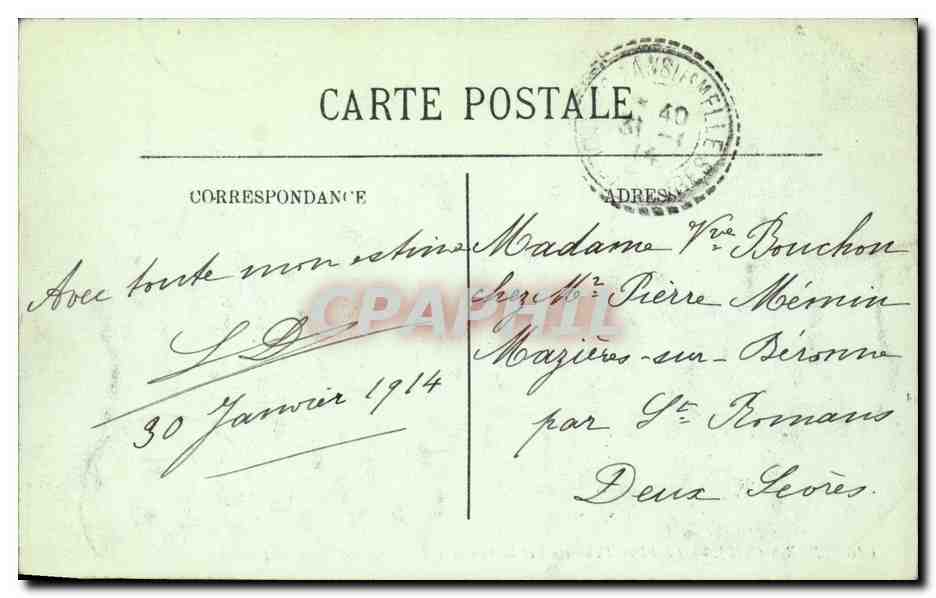 CARTE POSTALE
CORRESPONDANCE
ADRESSE
Avec toute mon estime
L D
30 Janvier 1914
Madame Vve Bouchon
chez Mr Pierre Mémin
Mazières-sur-Béronne
par St Romans
Deux Sèvres.
ROMANS LES MELLE
40
31 -1
14
CPAPHIL